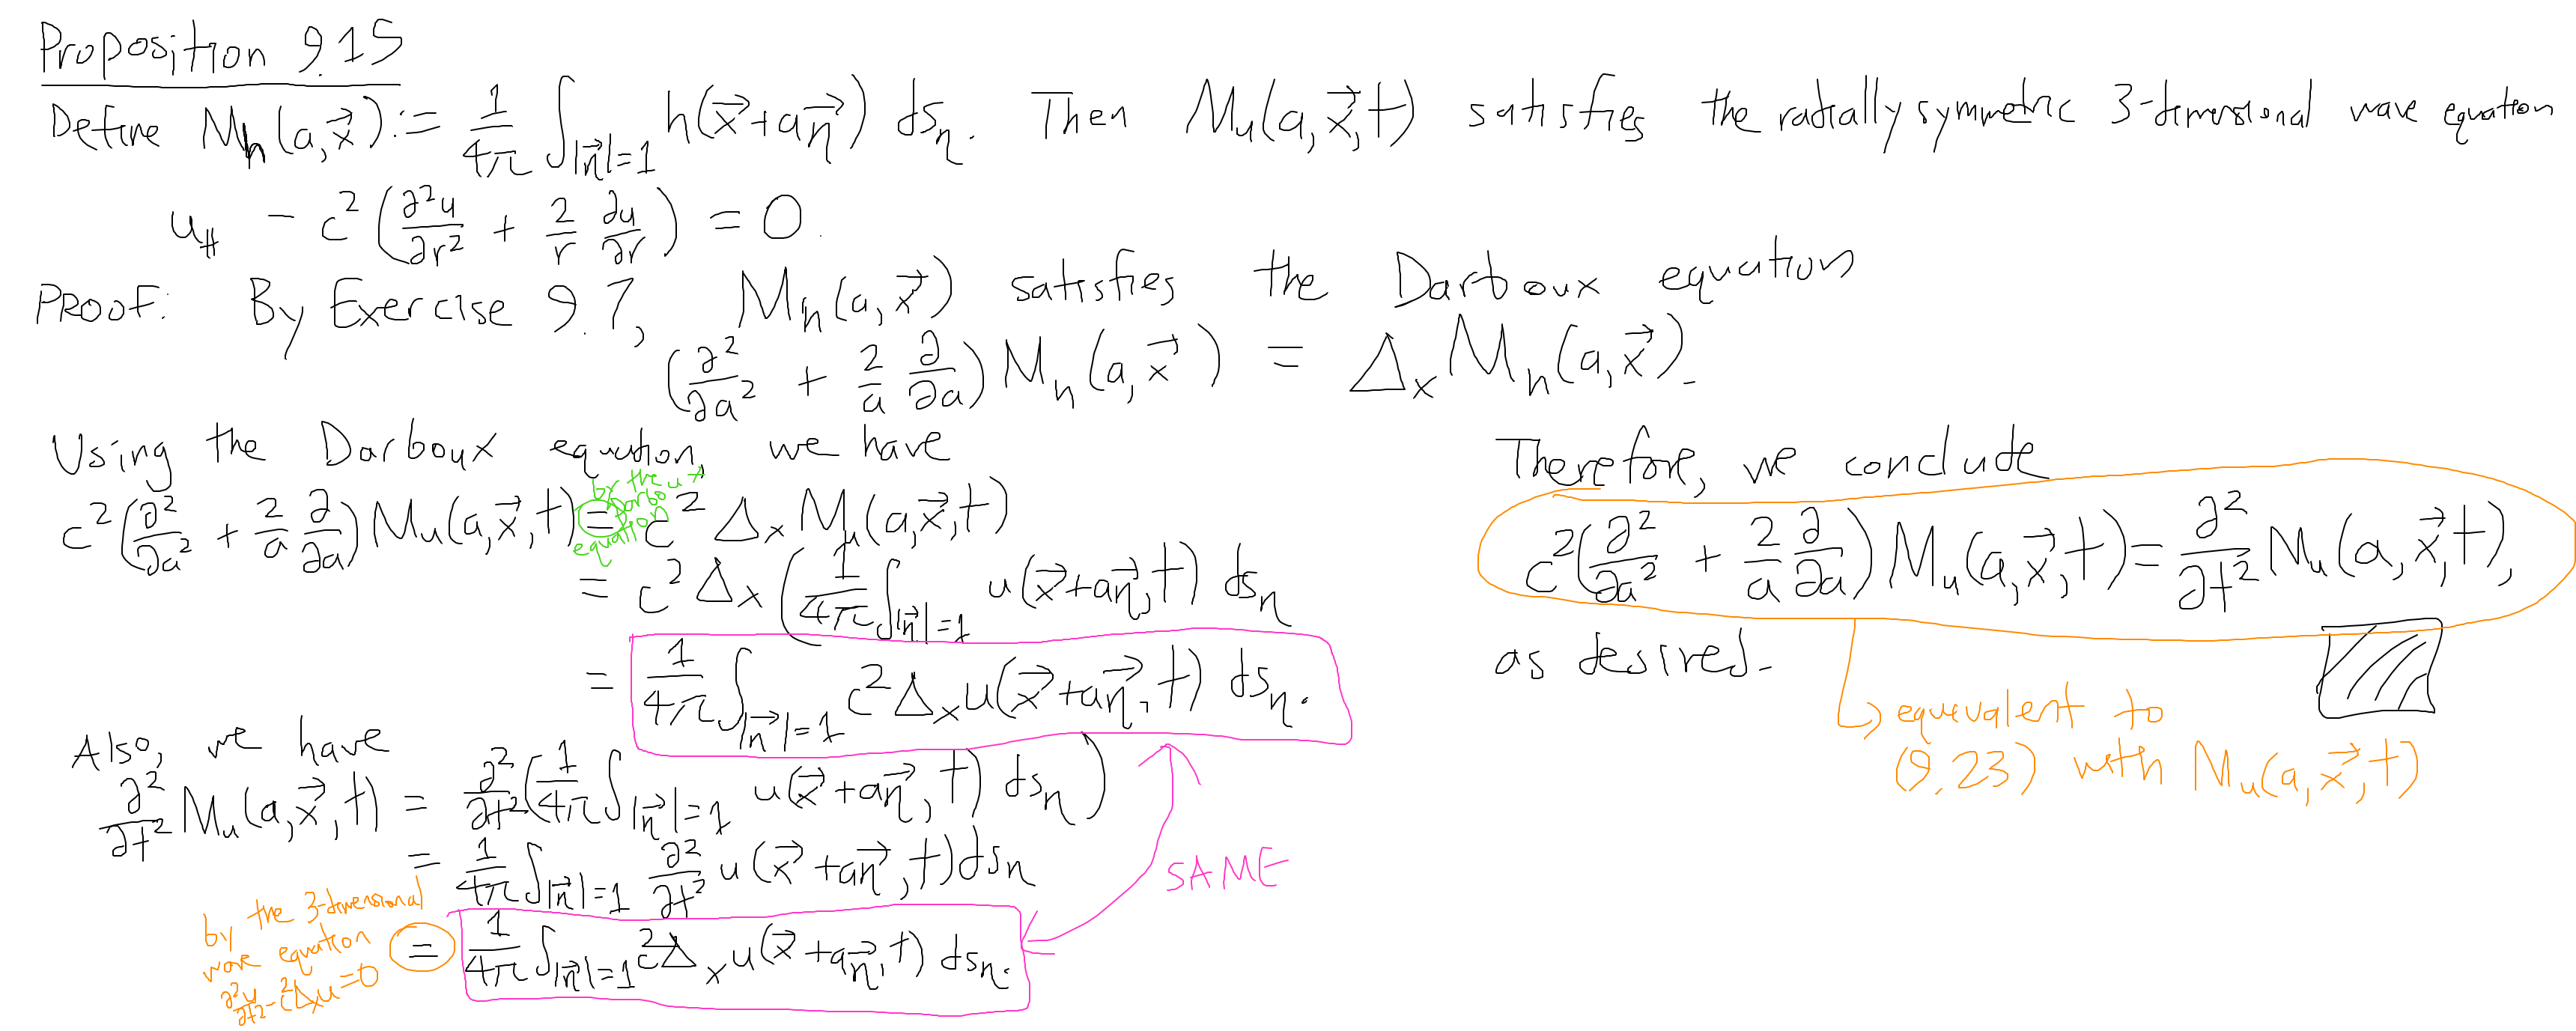 Proposition 9.15
Define M_h(a,x⃗) := 1/4π ∫_{|η⃗|=1} h(x⃗+aη⃗) dS_η. Then M_u(a,x⃗,t) satisfies the radially symmetric 3-dimensional wave equation
u_tt - c²(∂²u/∂r² + 2/r ∂u/∂r) = 0.
PROOF: By Exercise 9.7, M_h(a,x⃗) satisfies the Darboux equation
(∂²/∂a² + 2/a ∂/∂a) M_h(a,x⃗) = Δ_x M_h(a,x⃗).
Using the Darboux equation, we have
c²(∂²/∂a² + 2/a ∂/∂a) M_u(a,x⃗,t) = c² Δ_x M_u(a,x⃗,t)
by the
Darboux
equation
= c² Δ_x (1/4π ∫_{|η⃗|=1} u(x⃗+aη⃗,t) dS_η
= 1/4π ∫_{|η⃗|=1} c² Δ_x u(x⃗+aη⃗,t) dS_η.
Also, we have
∂²/∂t² M_u(a,x⃗,t) = ∂²/∂t² (1/4π ∫_{|η⃗|=1} u(x⃗+aη⃗,t) dS_η)
= 1/4π ∫_{|η⃗|=1} ∂²/∂t² u(x⃗+aη⃗,t) dS_η
= 1/4π ∫_{|η⃗|=1} c² Δ_x u(x⃗+aη⃗,t) dS_η.
by the 3-dimensional
wave equation
∂²u/∂t² - c²Δu = 0
SAME
Therefore, we conclude
c²(∂²/∂a² + 2/a ∂/∂a) M_u(a,x⃗,t) = ∂²/∂t² M_u(a,x⃗,t),
as desired.
equivalent to
(9.23) with M_u(a,x⃗,t)